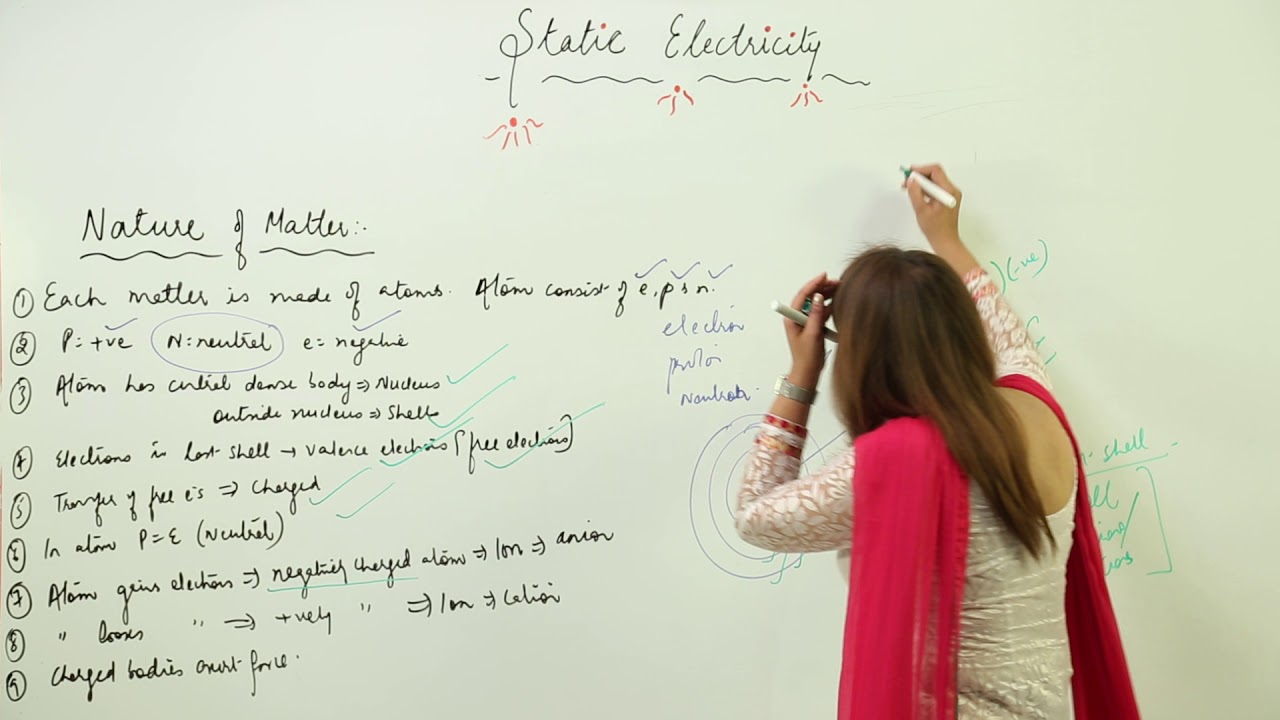 Static Electricity
Nature of Matter:-
① Each matter is made of atoms. Atom consist of e, p & n.
② P = +ve N = neutral e = negative
③ Atom has central dense body ⇒ Nucleus
outside nucleus ⇒ Shells
④ Electrons in last shell → valence electrons (free electrons)
⑤ Transfer of free e's ⇒ Charged
⑥ In atom P = E (Neutral)
⑦ Atom gains electrons ⇒ negatively charged atom ⇒ Ion ⇒ anion
⑧ " looses " ⇒ +vely " ⇒ Ion ⇒ Cation
⑨ Charged bodies exert force.
electron
proton
Neutron
(-ve)
shell